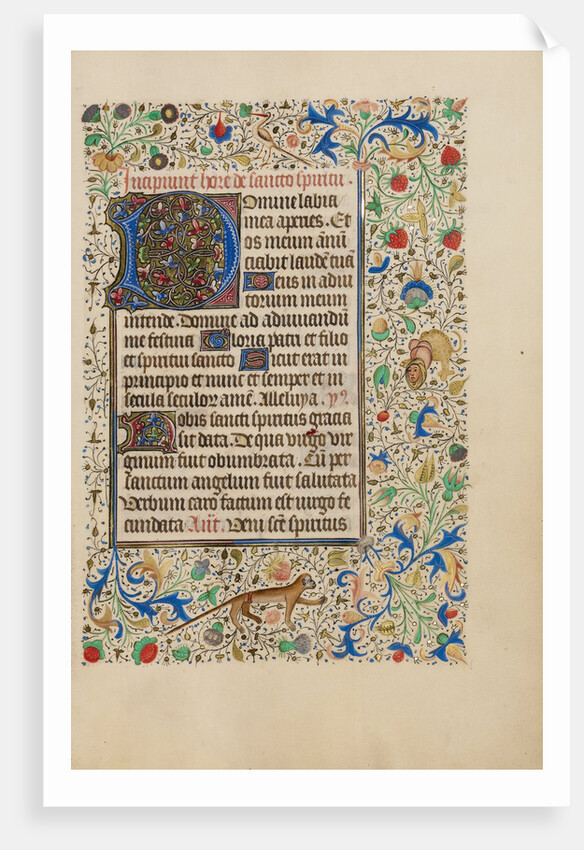 Incipiunt hore de sancto spiritu.
Domine labia
mea aperies. Et
os meum ānū
ciabit laudē tuā
Deus in adiu
torium meum
intende. Domine ad adiuuandum
me festina Gloria patri et filio
et spiritui sancto Sicut erat in
principio et nunc et semper et in
secula seculor amē. Alleluya. yꝰ.
Nobis sancti spiritus gracia
sit data. De qua virgo vir
ginum fuit obumbrata. Cū per
sanctum angelum fuit salutata
Verbum caro factum est virgo fe
cundata Añt. Veni scē spiritus